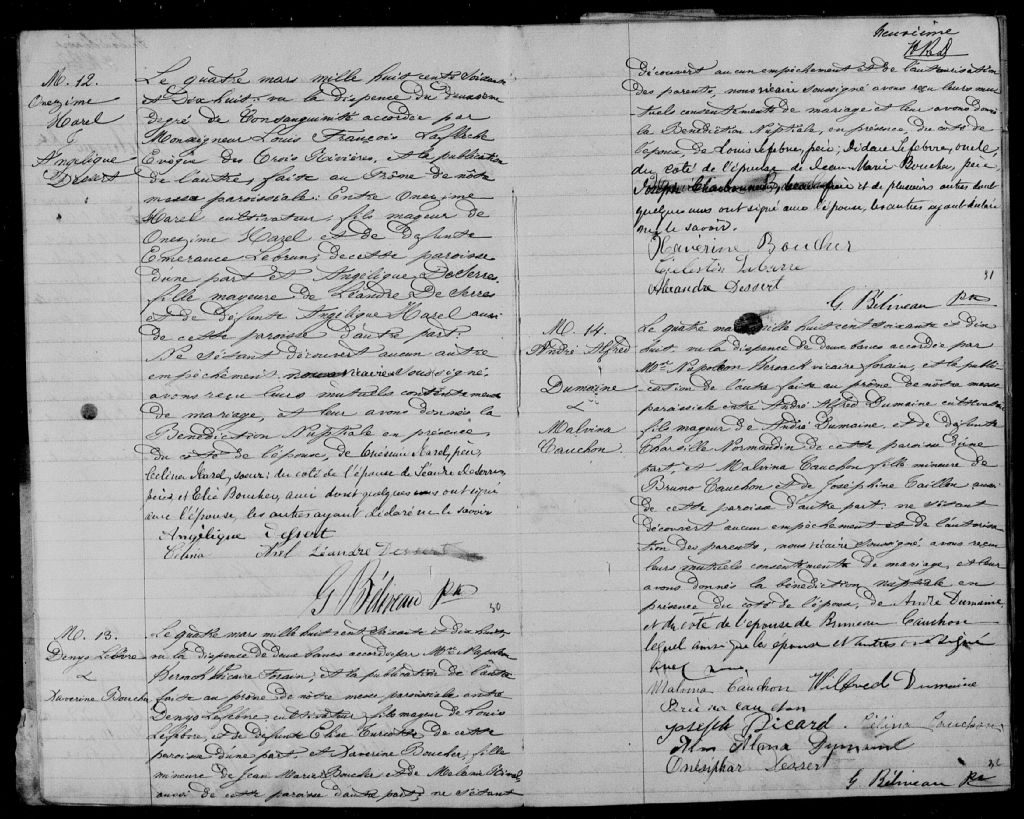 M. 12.
Onezime
Harel
&
Angélique
Dessert
Le quatre mars mille huit cent soixante
et Dix huit, vu la dispence du deuxième
degré de Consanguinité accordée par
Monseigneur Louis François Lafleche
Evêque des Trois Rivières, et la publication
de l'autre, faite au Prône de nôtre
messe paroissiale; Entre Onezime
Harel cultivateur, fils mageur de
Onezime Harel et de Defunte
Emerance Lebrun, de cette paroisse
d'une part et Angélique DeSerres
fille mageure de Léandre DeSerres
et de défunte Angélique Harel aussi
de cette paroisse d'autre part.
Ne s'étant découvert aucun autre
empêchement, nous vicaire Soussigné,
avons reçu leurs mutuels consentements
de mariage, et leur avons donnés la
Bénédiction Nuptiale en présence
du coté de l'époux, de Onésime Harel, père,
Celina Harel, soeur; du coté de l'épouse de Léandre deSerres
père, et Elie Boucher, ami dont quelques uns ont signé
avec l'épouse, les autres ayant déclaré ne le savoir
Angélique Dessert
Célina Arel Léandre Dessert
G Béliveau Ptr
30
M. 13.
Denys Lefèbvre
&
Xaverine Boucher
Le quatre mars mille huit cent soixante et dix huit,
vu la dispence de deux bancs accordés par Mre Napoléon
Keroack Vicaire Forain; et la publication de l'autre
faite au prône de nôtre messe paroissiale entre
Denys Lefebvre cultivateur, fils mageur de Louis
Lefebvre, et de defunte Elise Turcotte de cette
paroisse d'une part, et Xaverine Boucher, fille
mineure de Jean Marie Boucher et de Melanie
aussi de cette paroisse d'autre part; ne s'étant
neuvième
découvert aucun empêchement et de l'autorisation
des parents, nous vicaire soussigné avons reçu leurs mu
tuels consentements de mariage et leur avons donné
la Bénédiction Nuptiale, en présence, du coté de
l'époux, de Louis Lefebvre, père; Isidore Lefebvre, oncle,
du coté de l'épouse de Jean Marie Boucher, père,
Joseph Charbonneau, beau père et de plusieurs autres dont
quelques uns ont signé avec l'épouse, les autres ayant déclaré
ne le savoir.
Xavérine Boucher
Célestin
Alexandre Dessert
31
G. Béliveau Ptr
M. 14.
André Alfred
Dumaine
&
Malvina
Cauchon.
Le quatre mars mille huit cent soixante et dix
huit, vu la dispence de deux bancs accordée par
Mre Napoléon Keroack vicaire forain, et la publi
cation de l'autre faite au prône de nôtre messe
paroissiale entre André Alfred Dumaine cultivateur
fils mageur de André Dumaine, et de Défunte
Tharsille Normandin de cette paroisse d'une
part et Malvina Cauchon fille mineure de
Bruno Cauchon et de Joséphine Taillon aussi
de cette paroisse d'autre part. ne s'étant
découvert aucun empêchement et de l'autorisa
tion des parents, nous vicaire soussigné avons reçu
leurs mutuels consentements de mariage, et leur
avons donnés la bénédiction nuptiale en
présence du coté de l'époux, de André Dumaine,
et du coté de l'épouse de Bruneau Cauchon
lequel ainsi que les épouse et autres ont signé
avec nous
Malvina Cauchon Wilfred Dumaine
Bruno cauchon
Joseph Picard Célina Cauchon
Alma Dumaine
Onésiphar Dessert
32
G. Béliveau Ptr